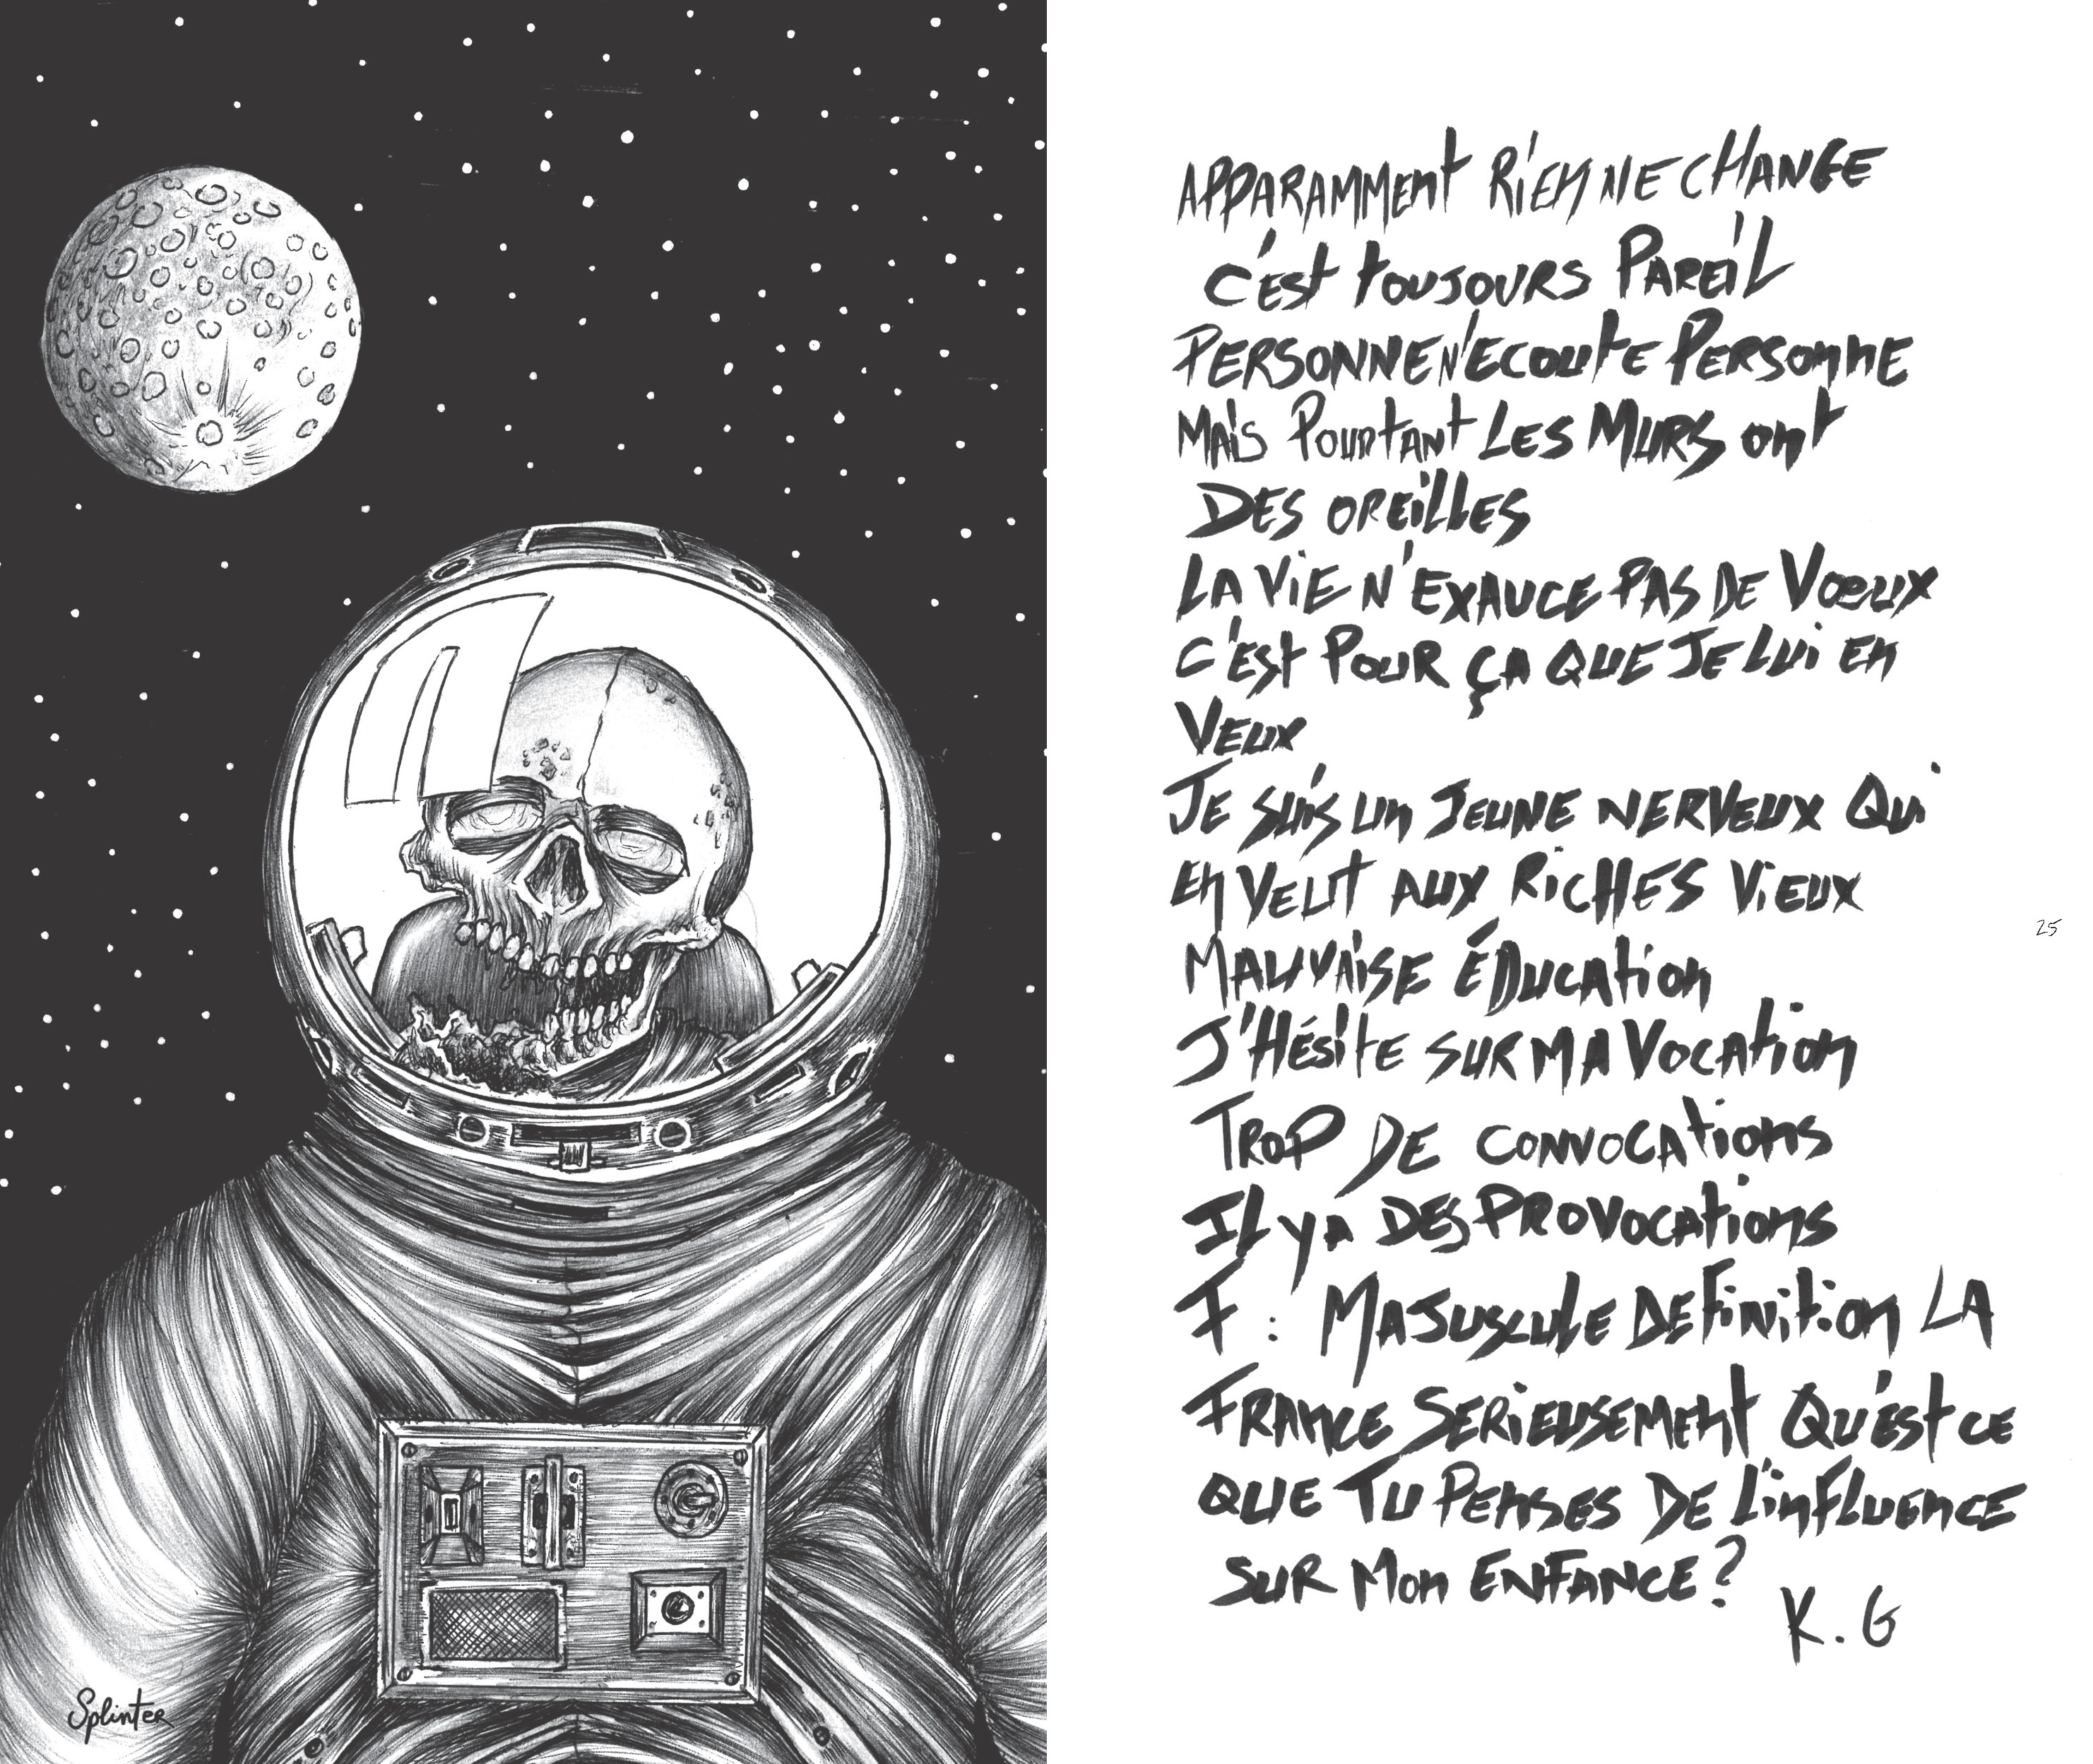 Splinter
APPARAMMENT RIEN NE CHANGE
C'EST TOUJOURS PAREIL
PERSONNE N'ECOUTE PERSONNE
MAIS POURTANT LES MURS ONT
DES OREILLES
LA VIE N'EXAUCE PAS DE VœUX
C'EST POUR ÇA QUE JE LUI EN
VEUX
JE SUIS UN JEUNE NERVEUX QUI
EN VEUT AUX RICHES VIEUX
MAUVAISE ÉDUCATION
J'HÉSITE SUR MA VOCATION
TROP DE CONVOCATIONS
IL Y A DES PROVOCATIONS
F : MAJUSCULE DEFINITION LA
FRANCE SERIEUSEMENT QU'EST CE
QUE TU PENSES DE L'INFLUENCE
SUR MON ENFANCE ?
K. G
25